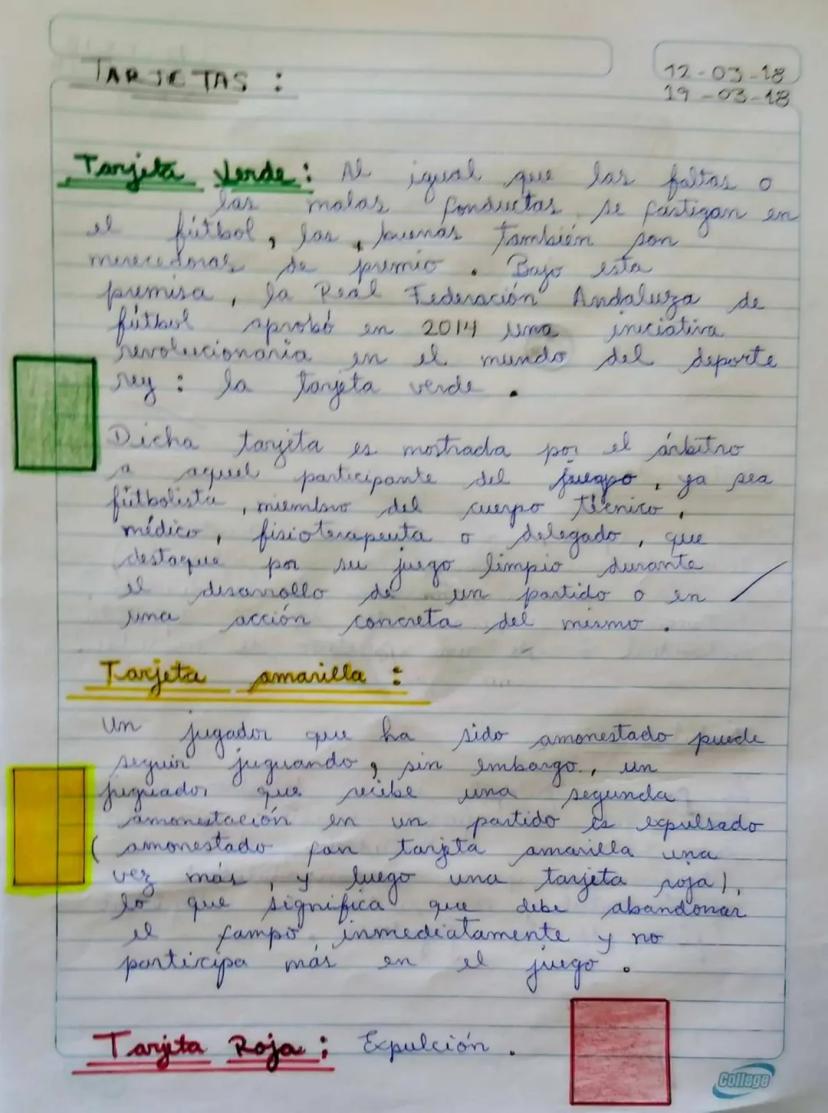 TARJETAS :
12-03-18
19-03-18
Tarjeta Verde: Al igual que las faltas o
las malas conductas se castigan en
el fútbol, las, buenas también son
merecedoras de premio. Bajo esta
premisa, la Real Federación Andaluza de
fútbol aprobó en 2014 una iniciativa
revolucionaria en el mundo del deporte
rey : la tarjeta verde.
Dicha tarjeta es mostrada por el árbitro
a aquel participante del juego, ya sea
fútbolista, miembro del cuerpo técnico,
médico, fisioterapeuta o delegado, que
destaque por su juego limpio durante
el desarrollo de un partido o en
una acción concreta del mismo.
Tarjeta amarilla :
Un jugador que ha sido amonestado puede
seguir juguando, sin embargo, un
juguador que recibe una segunda
amonestación en un partido es expulsado
(amonestado con tarjeta amarilla una
vez más, y luego una tarjeta roja),
lo que significa que debe abandonar
el campo inmediatamente y no
participa más en el juego.
Tarjeta Roja: Expulción.
College